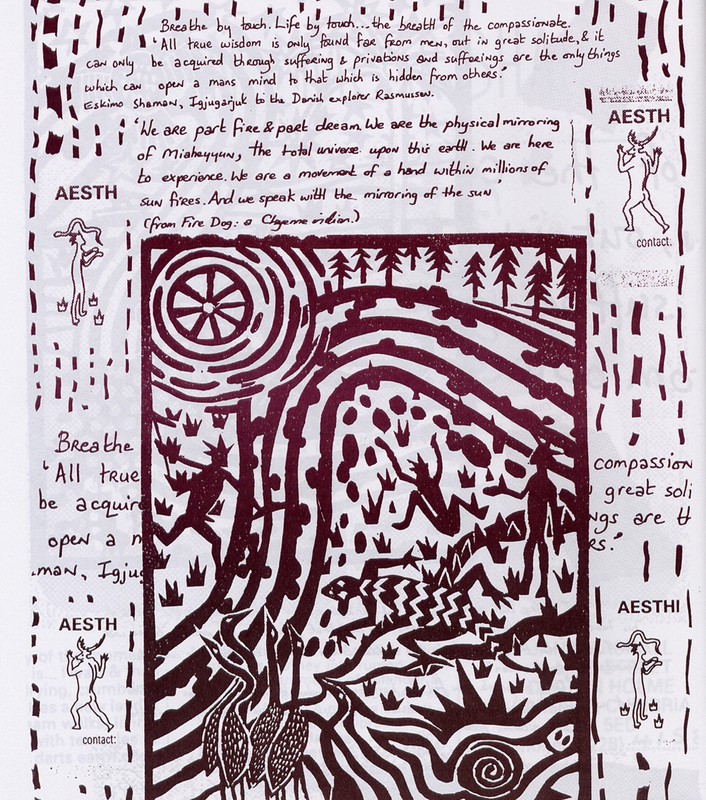 Breathe by touch. Life by touch...the breath of the compassionate.
'All true wisdom is only found far from men, out in great solitude, & it
can only be acquired through suffering & privations and sufferings are the only things
which can open a mans mind to that which is hidden from others.'
Eskimo Shaman, Igjugarjuk to the Danish explorer Rasmussen.
'We are part fire & part dream. We are the physical mirroring
of Miaheyyun, the total universe upon this earth. We are here
to experience. We are a movement of a hand within millions of
sun fires. And we speak with the mirroring of the sun'
(from Fire Dog: a Cheyenne indian.)
AESTH
AESTH
contact:
Breathe
'All true
be acquire
open a m
man, Igjug
compassion
great soli
ngs are th
rs.'
AESTH
contact:
AESTHI